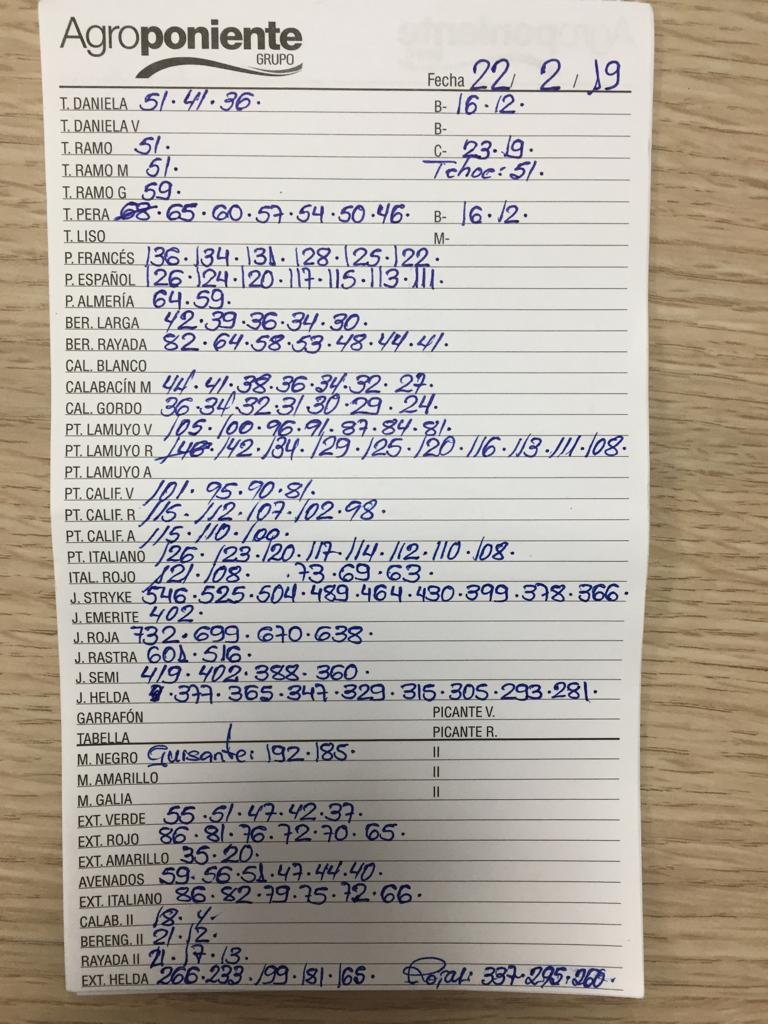 Agroponiente
GRUPO
Fecha 22 / 2 / 19
T. DANIELA 51. 41. 36. B- 16. 12.
T. DANIELA V B-
T. RAMO 51. C- 23. 19.
T. RAMO M 51. Tchoc: 51.
T. RAMO G 59.
T. PERA 68. 65. 60. 57. 54. 50. 46. B- 16. 12.
T. LISO M-
P. FRANCÉS 136. 134. 131. 128. 125. 122.
P. ESPAÑOL 126. 124. 120. 117. 115. 113. 111.
P. ALMERÍA 64. 59.
BER. LARGA 42. 39. 36. 34. 30.
BER. RAYADA 82. 64. 58. 53. 48. 44. 41.
CAL. BLANCO
CALABACÍN M 44. 41. 38. 36. 34. 32. 27.
CAL. GORDO 36. 34. 32. 31 30. 29. 24.
PT. LAMUYO V 105. 100. 96. 91. 87. 84. 81.
PT. LAMUYO R 146. 142. 134. 129. 125. 120. 116. 113. 111. 108.
PT. LAMUYO A
PT. CALIF. V 101. 95. 90. 81.
PT. CALIF. R 115. 112. 107. 102. 98.
PT. CALIF. A 115. 110. 100.
PT. ITALIANO 126. 123. 120. 117. 114. 112. 110. 108.
ITAL. ROJO 121. 108. . 73. 69. 63.
J. STRYKE 546. 525. 504. 489. 464. 430. 399. 378. 366.
J. EMERITE 402.
J. ROJA 732. 699. 670. 638.
J. RASTRA 601. 516.
J. SEMI 419. 402. 388. 360.
J. HELDA 377. 365. 347. 329. 315. 305. 293. 281.
GARRAFÓN PICANTE V.
TABELLA PICANTE R.
M. NEGRO Guisante: 192. 185. II
M. AMARILLO II
M. GALIA II
EXT. VERDE 55. 51. 47. 42. 37.
EXT. ROJO 86. 81. 76. 72. 70. 65.
EXT. AMARILLO 35. 20.
AVENADOS 59. 56. 51. 47. 44. 40.
EXT. ITALIANO 86. 82. 79. 75. 72. 66.
CALAB. II 18. 4.
BERENG. II 21. 12.
RAYADA II 21. 17. 13.
EXT. HELDA 266. 233. 199. 181. 165. Rojas: 337. 295. 260.